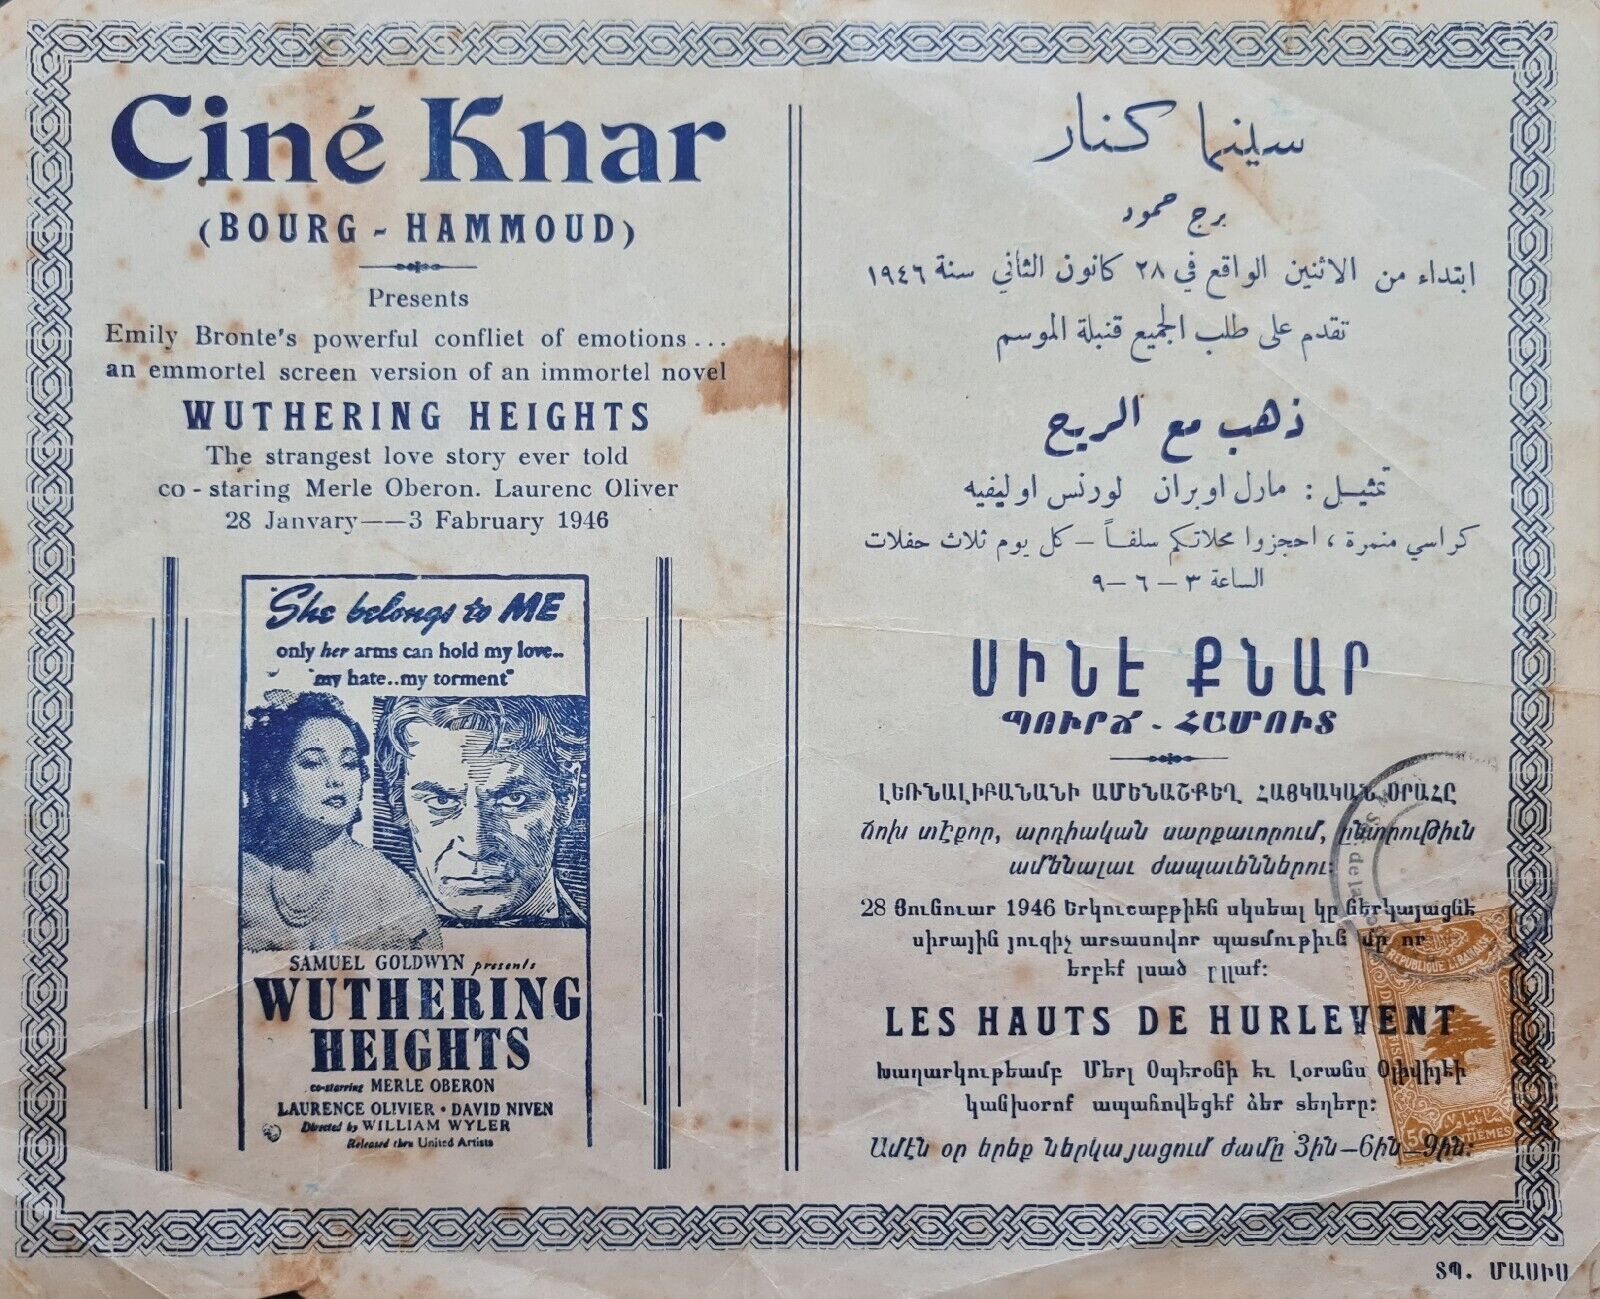 Ciné Knar
(BOURG - HAMMOUD)
Presents
Emily Bronte's powerful confliet of emotions...
an emmortel screen version of an immortel novel
WUTHERING HEIGHTS
The strangest love story ever told
co - staring Merle Oberon. Laurenc Oliver
28 Janvary——3 Fabruary 1946
She belongs to ME
only her arms can hold my love..
my hate..my torment"
SAMUEL GOLDWYN presents
WUTHERING
HEIGHTS
co-starring MERLE OBERON
LAURENCE OLIVIER • DAVID NIVEN
Directed by WILLIAM WYLER
Released thru United Artists
سينما كنار
برج حمود
ابتداء من الاثنين الواقع في ٢٨ كانون الثاني سنة ١٩٤٦
تقدم على طلب الجميع قنبلة الموسم
ذهب مع الريح
تمثيل : مارل اوبران لورنس اوليفيه
كراسي منمرة ، احجزوا محلاتكم سلفاً – كل يوم ثلاث حفلات
الساعة ٣ – ٦ – ٩
ՍԻՆԷ ՔՆԱՐ
ՊՈՒՐՃ - ՀԱՄՈՒՏ
ԼԵՌՆԱԼԻԲԱՆԱՆԻ ԱՄԵՆԱՇՔԵՂ ՀԱՅԿԱԿԱՆ ՍՐԱՀԸ
Ճոխ տէքոր, արդիական սարքաւորում, ընտրութիւն
ամենալաւ ժապաւէններու:
28 Յունուար 1946 Երկուշաբթիէն սկսեալ կը ներկայացնէ
սիրային յուզիչ արտասովոր պատմութիւն մը որ
երբեք լսած չըլլաք:
LES HAUTS DE HURLEVENT
Խաղարկութեամբ Մերլ Օպերօնի եւ Լօրանս Օլիվիյէի
կանխօրոք ապահովեցէք ձեր տեղերը:
Ամէն օր երեք ներկայացում ժամը 3ին—6ին—9ին:
REPUBLIQUE LIBANAISE
50
ՏՊ. ՄԱՍԻՍ